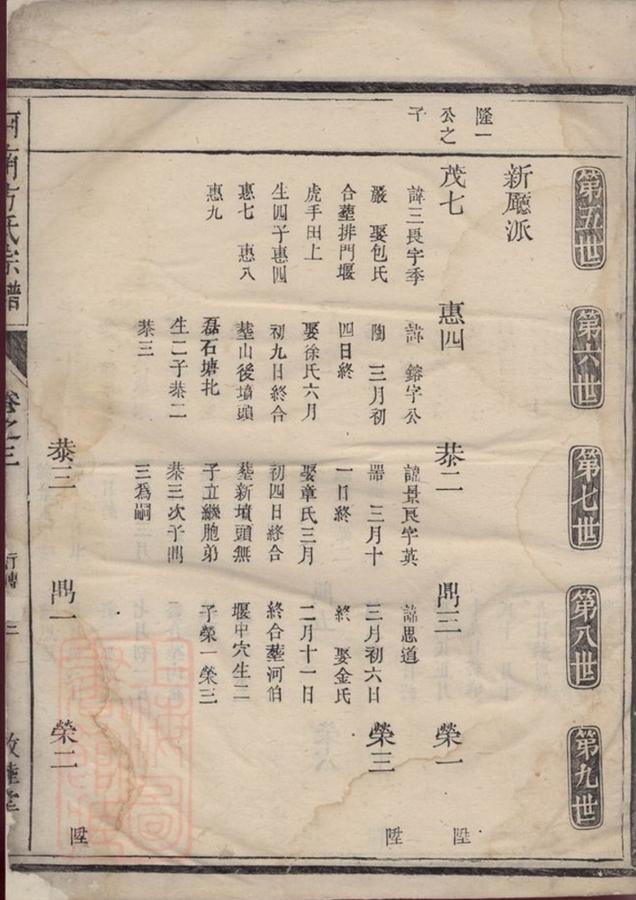 第五世
第六世
第七世
第八世
第九世
新廳派
隆一
公之
子
茂七
諱三長字季
嚴 娶包氏
合塟排門堰
虎手田上
生四子惠四
惠七 惠八
惠九
惠四
諱鎔字公
陶 三月初
四日終
娶徐氏六月
初九日終合
塟山後墳頭
磊石塘北
生二子恭二
恭三
恭二
諱景良字英
三月十
一日終
娶章氏三月
初四日終合
塟新墳頭無
子立繼胞弟
恭三次子鼎
三爲嗣
鼎三
諱思道
三月初六日
終 娶金氏
二月十一日
終合塟河伯
堰中穴生二
子榮一榮三
榮一
陞
榮三
陞
恭三
鼎一
榮二
陞
河南方氏宗譜
卷之三
行傳
三
敦睦堂